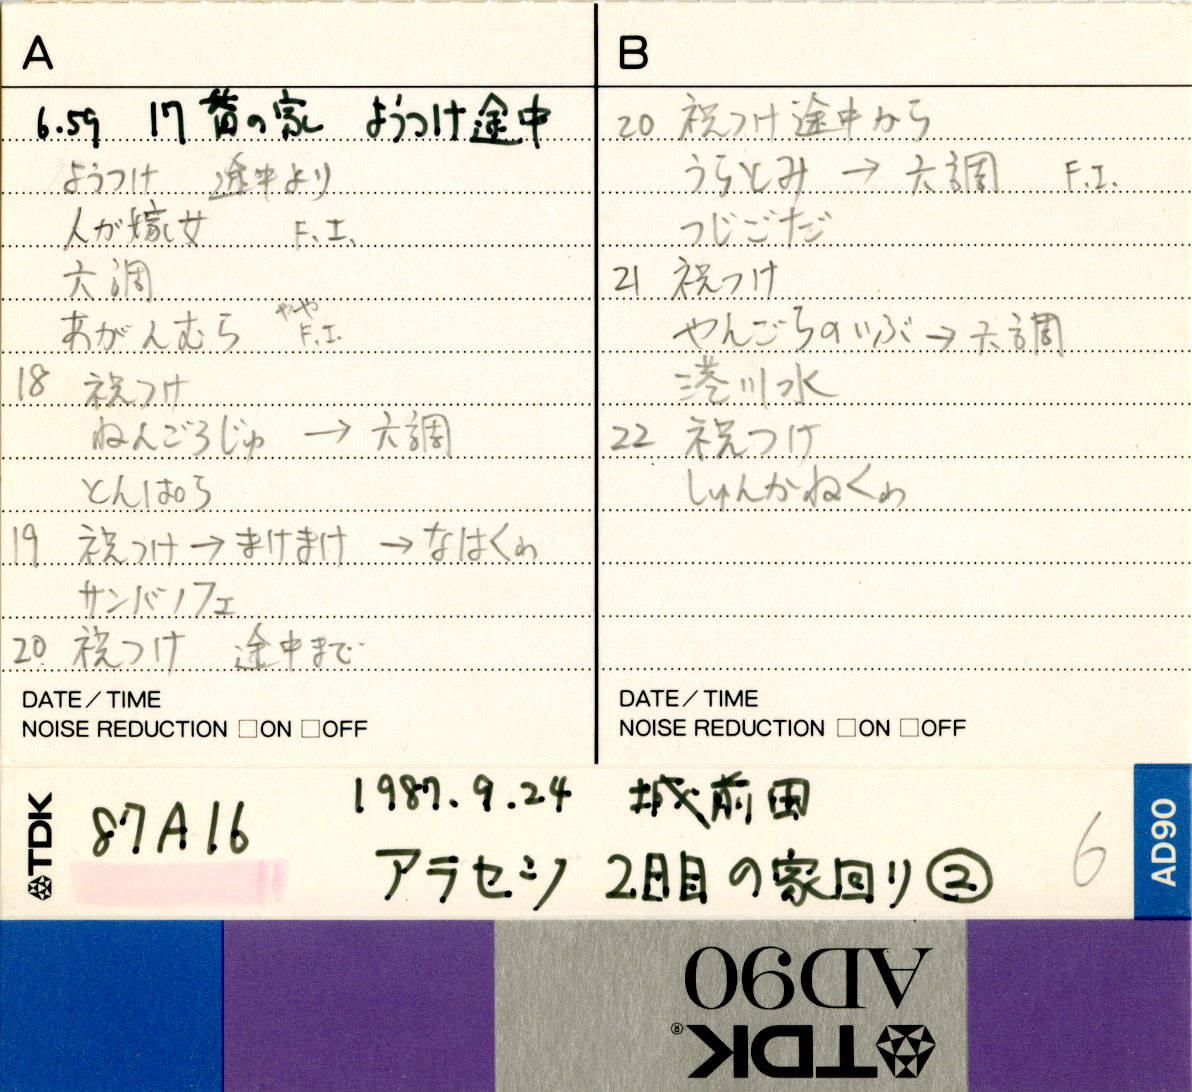 A
6.59 17番の家 ようつけ途中
ようつけ 途中より
人が嫁女 F.I.
六調
あがんむら やや F.I.
18 祝つけ
ねんごろじゅ → 六調
とんばら
19 祝つけ → まけまけ → なはくゎ
サンバノフェ
20 祝つけ 途中まで
DATE/TIME
NOISE REDUCTION □ON □OFF
B
20 祝つけ途中から
うらとみ → 六調 F.I.
つじごだ
21 祝つけ
やんごらのいぶ → 六調
港川水
22 祝つけ
しゅんかねくゎ
DATE/TIME
NOISE REDUCTION □ON □OFF
TDK
87A16
1987.9.24 城前田
アラセツ 2日目の家回り②
6
AD90
AD90
TDK®